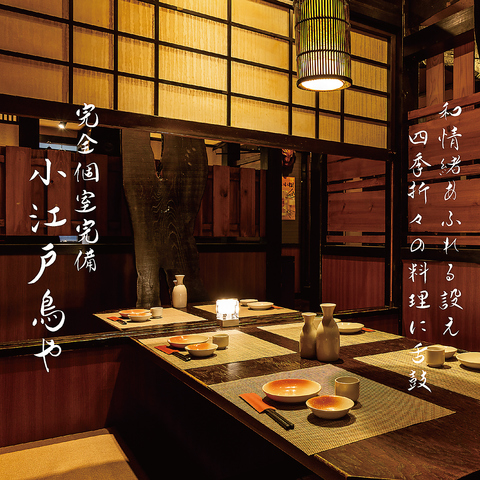 和情緒あふれる設え
四季折々の料理に舌鼓
完全個室完備
小江戸鳥や